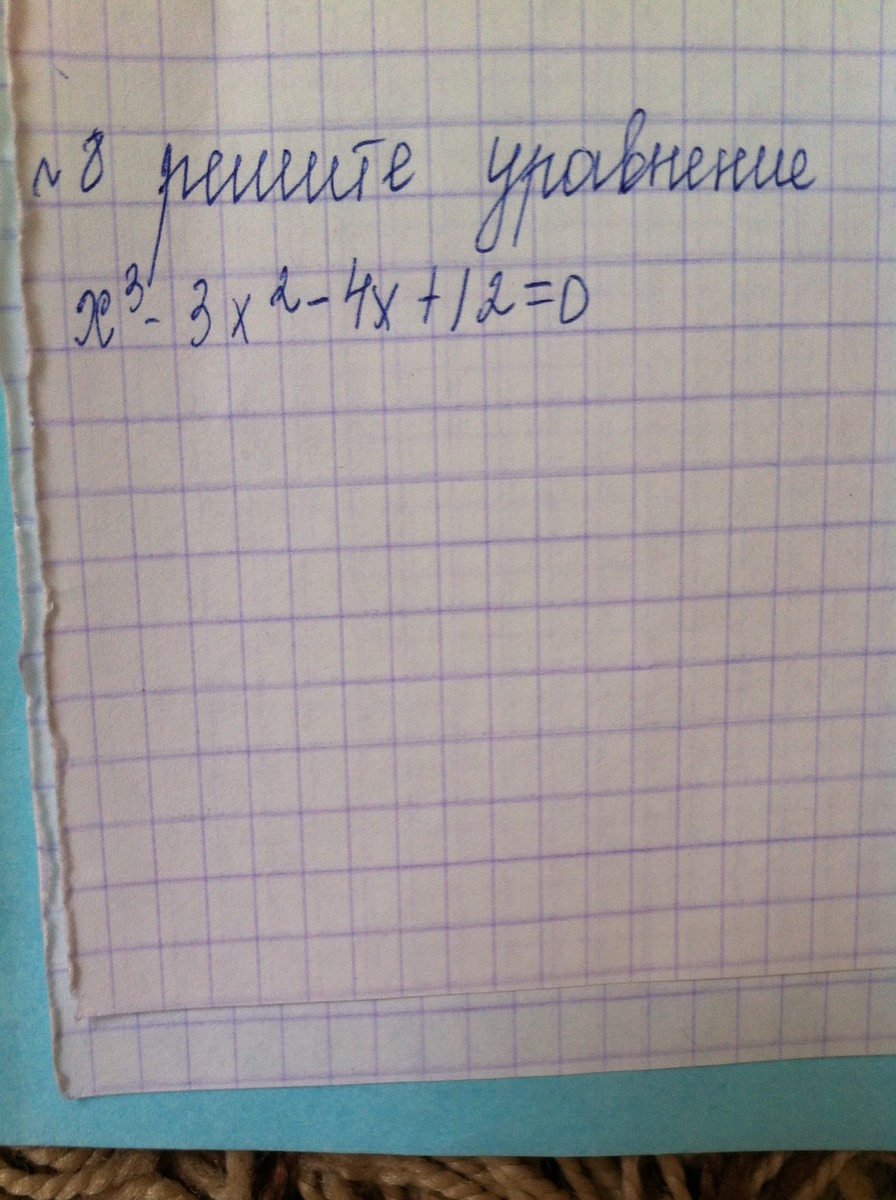 №8 решите уравнение
x³ - 3x² - 4x + 12 = 0